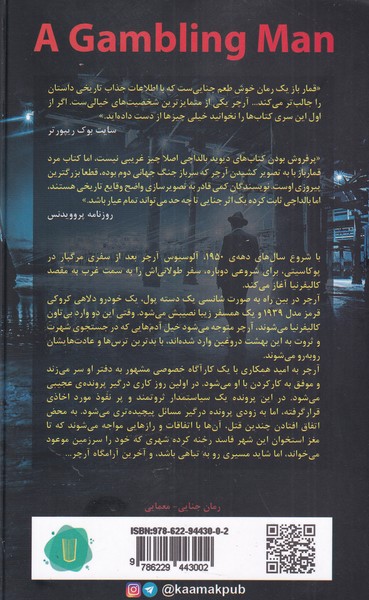 A Gambling Man
«قمار باز یک رمان خوش طعم جنایی‌ست که با اطلاعات جذاب تاریخی داستان
را جالب‌تر می‌کند... آرچر یکی از متمایزترین شخصیت‌های خیالی‌ست. اگر از
اول این سری کتاب‌ها را نخوانید خیلی چیزها از دست داده‌اید.»
سایت بوک ریپورتر
«پرفروش بودن کتاب‌های دیوید بالداچی اصلا چیز غریبی نیست، اما کتاب مرد
قمارباز با به تصویر کشیدن آرچر که سرباز جنگ جهانی دوم بوده، قطعا بزرگترین
پیروزی اوست. نویسندگان کمی قادر به تصویرسازی واضح وقایع تاریخی هستند،
اما بالداچی ثابت کرده یک اثر جنایی تا چه حد می‌تواند تمام عیار باشد.»
روزنامه پروویدنس
با شروع سال‌های دهه‌ی ۱۹۵۰، آلوسیوس آرچر بعد از سفری مرگبار در
پوکاسیتی، برای شروعی دوباره، سفر طولانی‌اش را به سمت غرب به مقصد
کالیفرنیا آغاز می‌کند.
آرچر در بین راه به صورت شانسی یک دسته پول، یک خودرو دلاهی کروکی
قرمز مدل ۱۹۳۹ و یک همسفر زیبا نصیبش می‌شود. وقتی این دو وارد بی‌تاون
کالیفرنیا می‌شوند، آرچر متوجه می‌شود خیل آدم‌هایی که در جستجوی شهرت
و ثروت به این بهشت دروغین وارد شده‌اند، با بدترین ترس‌ها و عادت‌هایشان
روبه‌رو می‌شوند.
آرچر به امید همکاری با یک کارآگاه خصوصی مشهور به دفتر او سر می‌زند
و موفق به کارکردن با او می‌شود. در اولین روز کاری درگیر پرونده‌ی عجیبی
می‌شود. در این پرونده یک سیاستمدار ثروتمند و پر نفوذ مورد اخاذی
قرارگرفته، اما به زودی پرونده درگیر مسائل پیچیده‌تری می‌شود. به محض
اتفاق افتادن چندین قتل، آن‌ها با اتفاقات و رازهایی مواجه می‌شوند که تا
مغز استخوان این شهر فاسد رخنه کرده شهری که خود را سرزمین موعود
می‌خواند، اما شاید مسیری رو به تباهی باشد، و آخرین آرامگاه آرچر...
رمان جنایی- معمایی
ISBN:978-622-94430-0-2
9 786229 443002
@kaamakpub